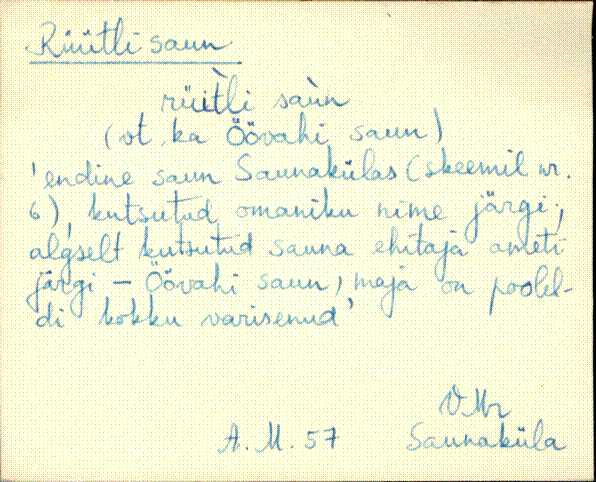 Rüütli saun
rüìtli saùn
(vt. ka Öövahi saun)
'endine saun Saunakülas (skeemil nr.
6), kutsutud omaniku nime järgi;
algselt kutsutud sauna ehitaja ameti
järgi – Öövahi saun, maja on poolel-
di kokku varisenud'
VMr
A. M. 57 Saunaküla